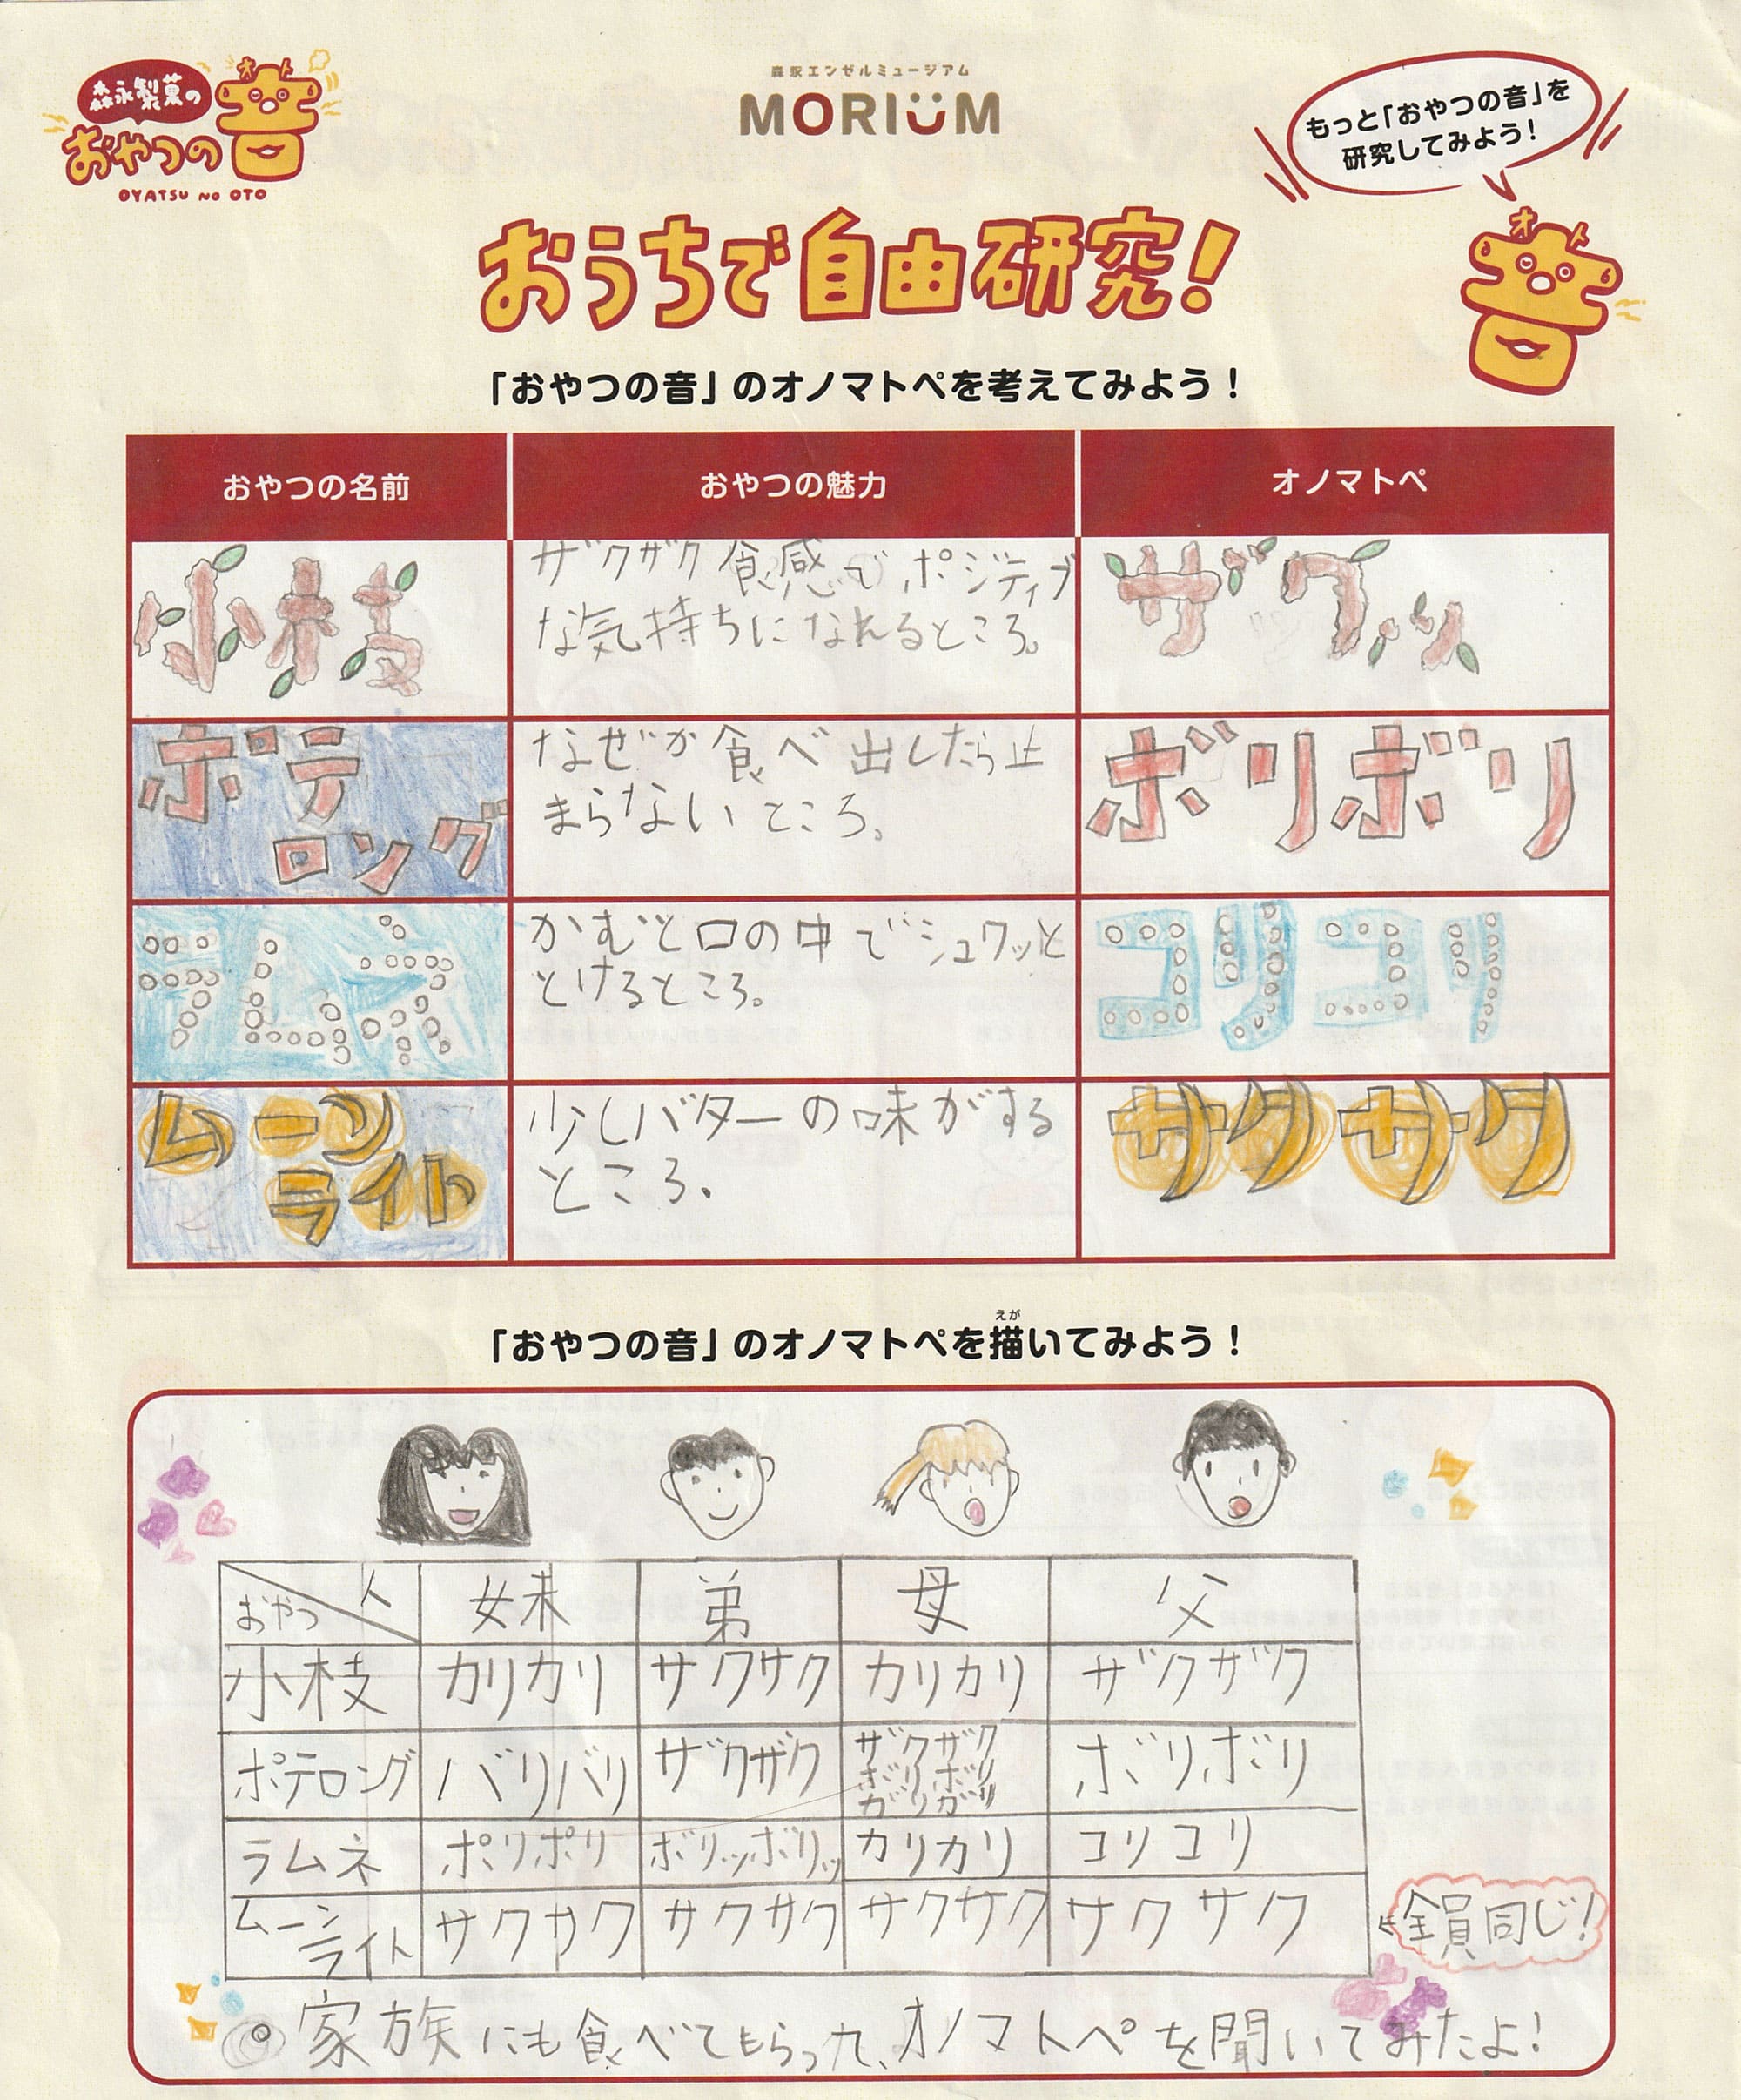 森永製菓の
おやつの音
オト
OYATSU NO OTO
森永エンゼルミュージアム
MORIUM
もっと「おやつの音」を
研究してみよう！
オト
音
おうちで自由研究！
「おやつの音」のオノマトペを考えてみよう！
おやつの名前 おやつの魅力 オノマトペ
小枝
ザクザク食感でポジティブ
な気持ちになれるところ。
ザクッ
ポテ
ロング
なぜか食べ出したら止
まらないところ。
ボリボリ
ラムネ
かむと口の中でシュワッと
とけるところ。
コリコリ
ムーン
ライト
少しバターの味がする
ところ。
サクサク
「おやつの音」のオノマトペを描いてみよう！
えが
おやつ 人 妹 弟 母 父
小枝 カリカリ サクサク カリカリ ザクザク
ポテロング バリバリ ザクザク ザクザク ボリボリ ガリガリ ボリボリ
ラムネ ポリポリ ボリッボリッ カリカリ コリコリ
ムーンライト サクサク サクサク サクサク サクサク
←全員同じ！
◎家族にも食べてもらって、オノマトペを聞いてみたよ！